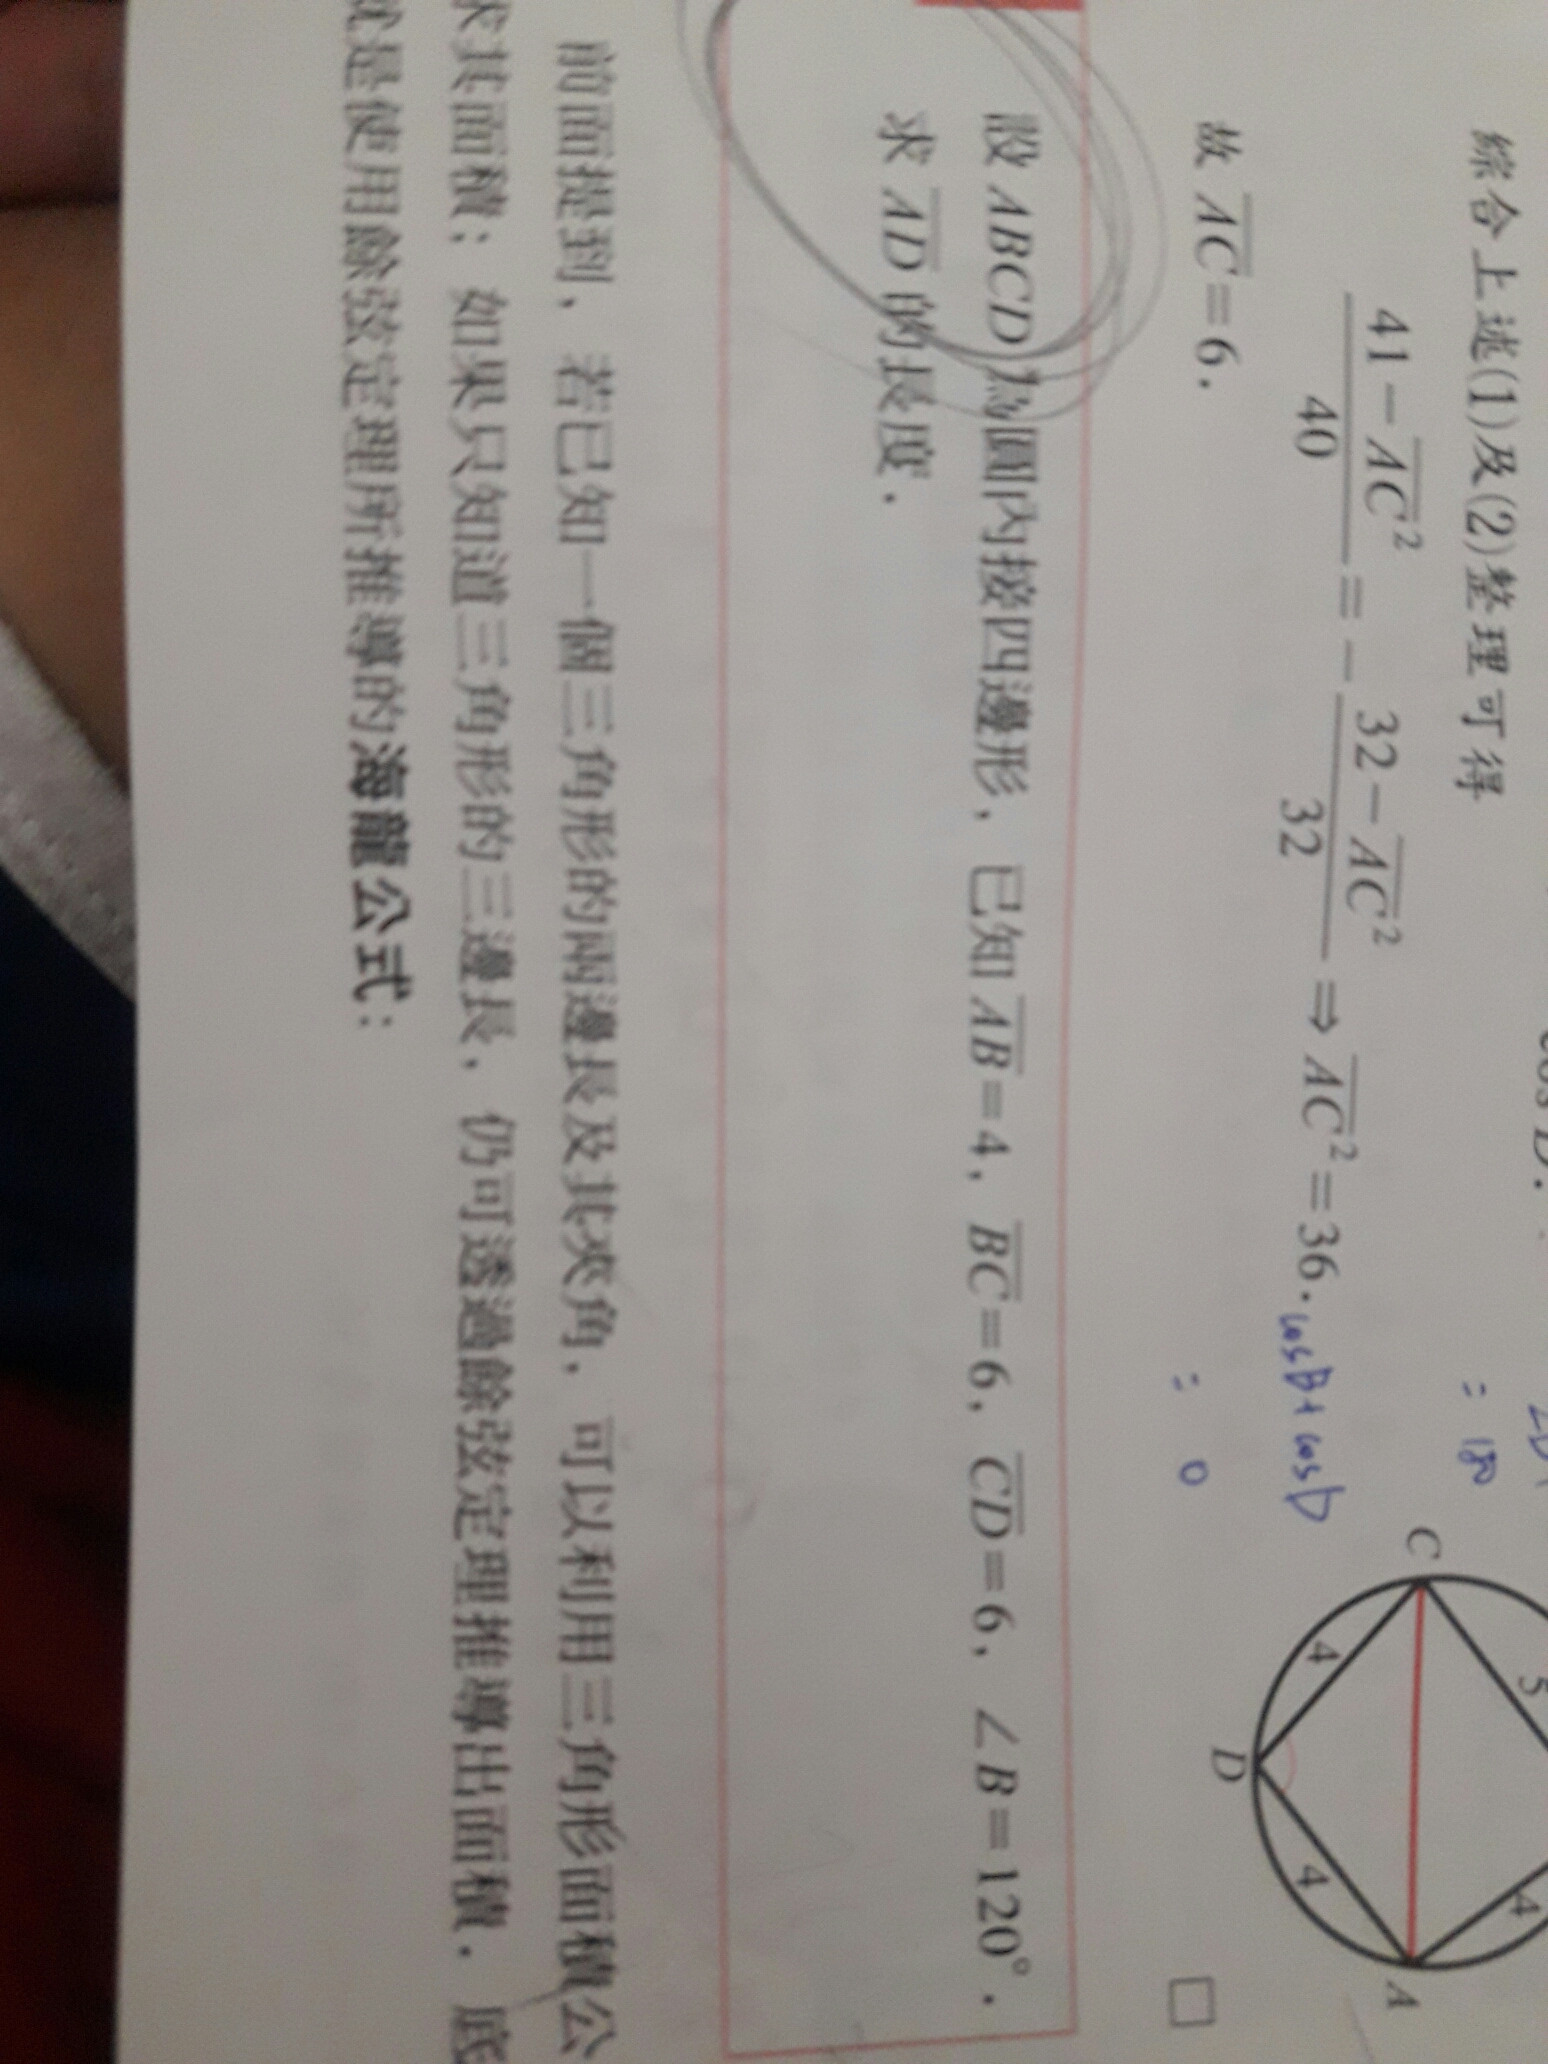 cos D.
綜合上述(1)及(2)整理可得
= 180
41-AC²/40 = -32-AC²/32 ⇒ AC²=36.
cosB+cosD
= 0
故 AC=6.
C
5
4
4
4
D
A
□
設 ABCD 為圓內接四邊形，已知 AB=4，BC=6，CD=6，∠B=120°.
求 AD 的長度.
前面提到，若已知一個三角形的兩邊長及其夾角，可以利用三角形面積公
求其面積；如果只知道三角形的三邊長，仍可透過餘弦定理推導出面積. 底
就是使用餘弦定理所推導的海龍公式：